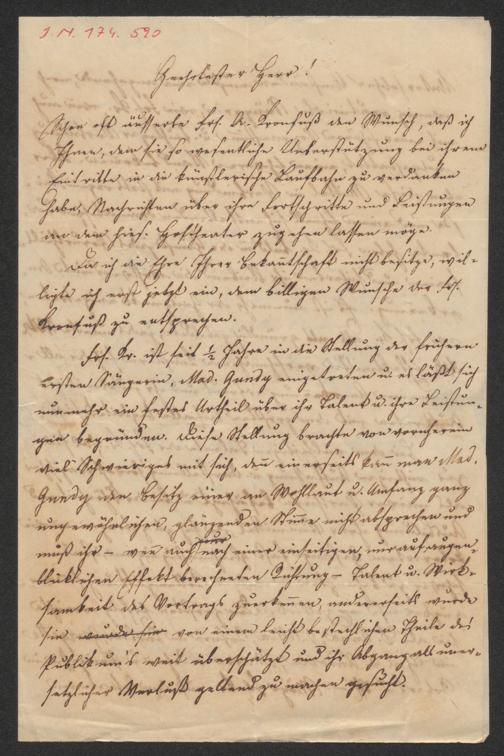 J.N. 174.590
Geehrtester Herr!
Schon oft äusserte Frl. A. Kronfuß den Wunsch, daß ich
Ihnen, dem sie so wesentliche Unterstützung bei ihrem
Eintritte in die künstlerische Laufbahn zu verdanken
habe, Nachrichten über ihre Fortschritte und Leistungen
an dem hies. Hoftheater zugehen lassen möge.
Da ich die Ehre Ihrer Bekantschaft nicht besitze, wil-
ligte ich erst jetzt ein, dem billigen Wunsche der Frl.
Kronfuß zu entsprechen.
Frl. Kr. ist seit ½ Jahre in die Stellung der frühern
ersten Sängerin, Mad. Gundy eingetreten u. es läßt sich
nunmehr ein festes Urtheil über ihr Talent u. ihre Leistun-
gen begründen. Diese Stellung brachte von vornherein
viel Schwieriges mit sich, denn einerseits kann man Mad.
Gundy den Besitz einer an Wohllaut u. Umfang ganz
ungewöhnlichen, glänzenden Stimme nicht absprechen und
muß ihr – wenn auch nur nach einer einseitigen, nur auf augen-
blicklichen Effekt berechneten Richtung – Talent u. Wirk-
samkeit des Vortrags zuerkennen, andererseits wurde
sie wurde sie von einem leicht bestechlichen Theile des
Publikum's weit überschätzt und ihr Abgang als uner-
setzlicher Verlust geltend zu machen gesucht.